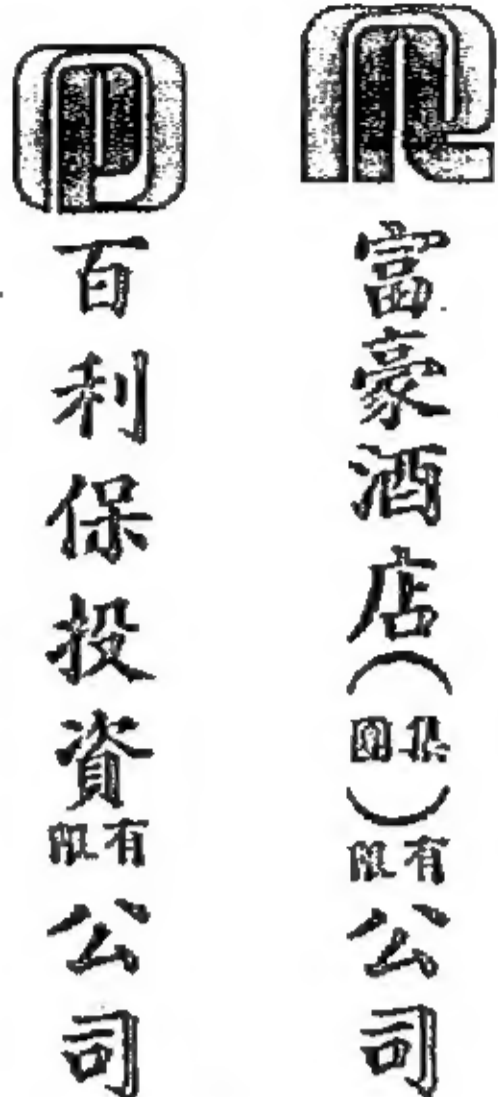 富豪酒店(集團)有限公司
百利保投資有限公司